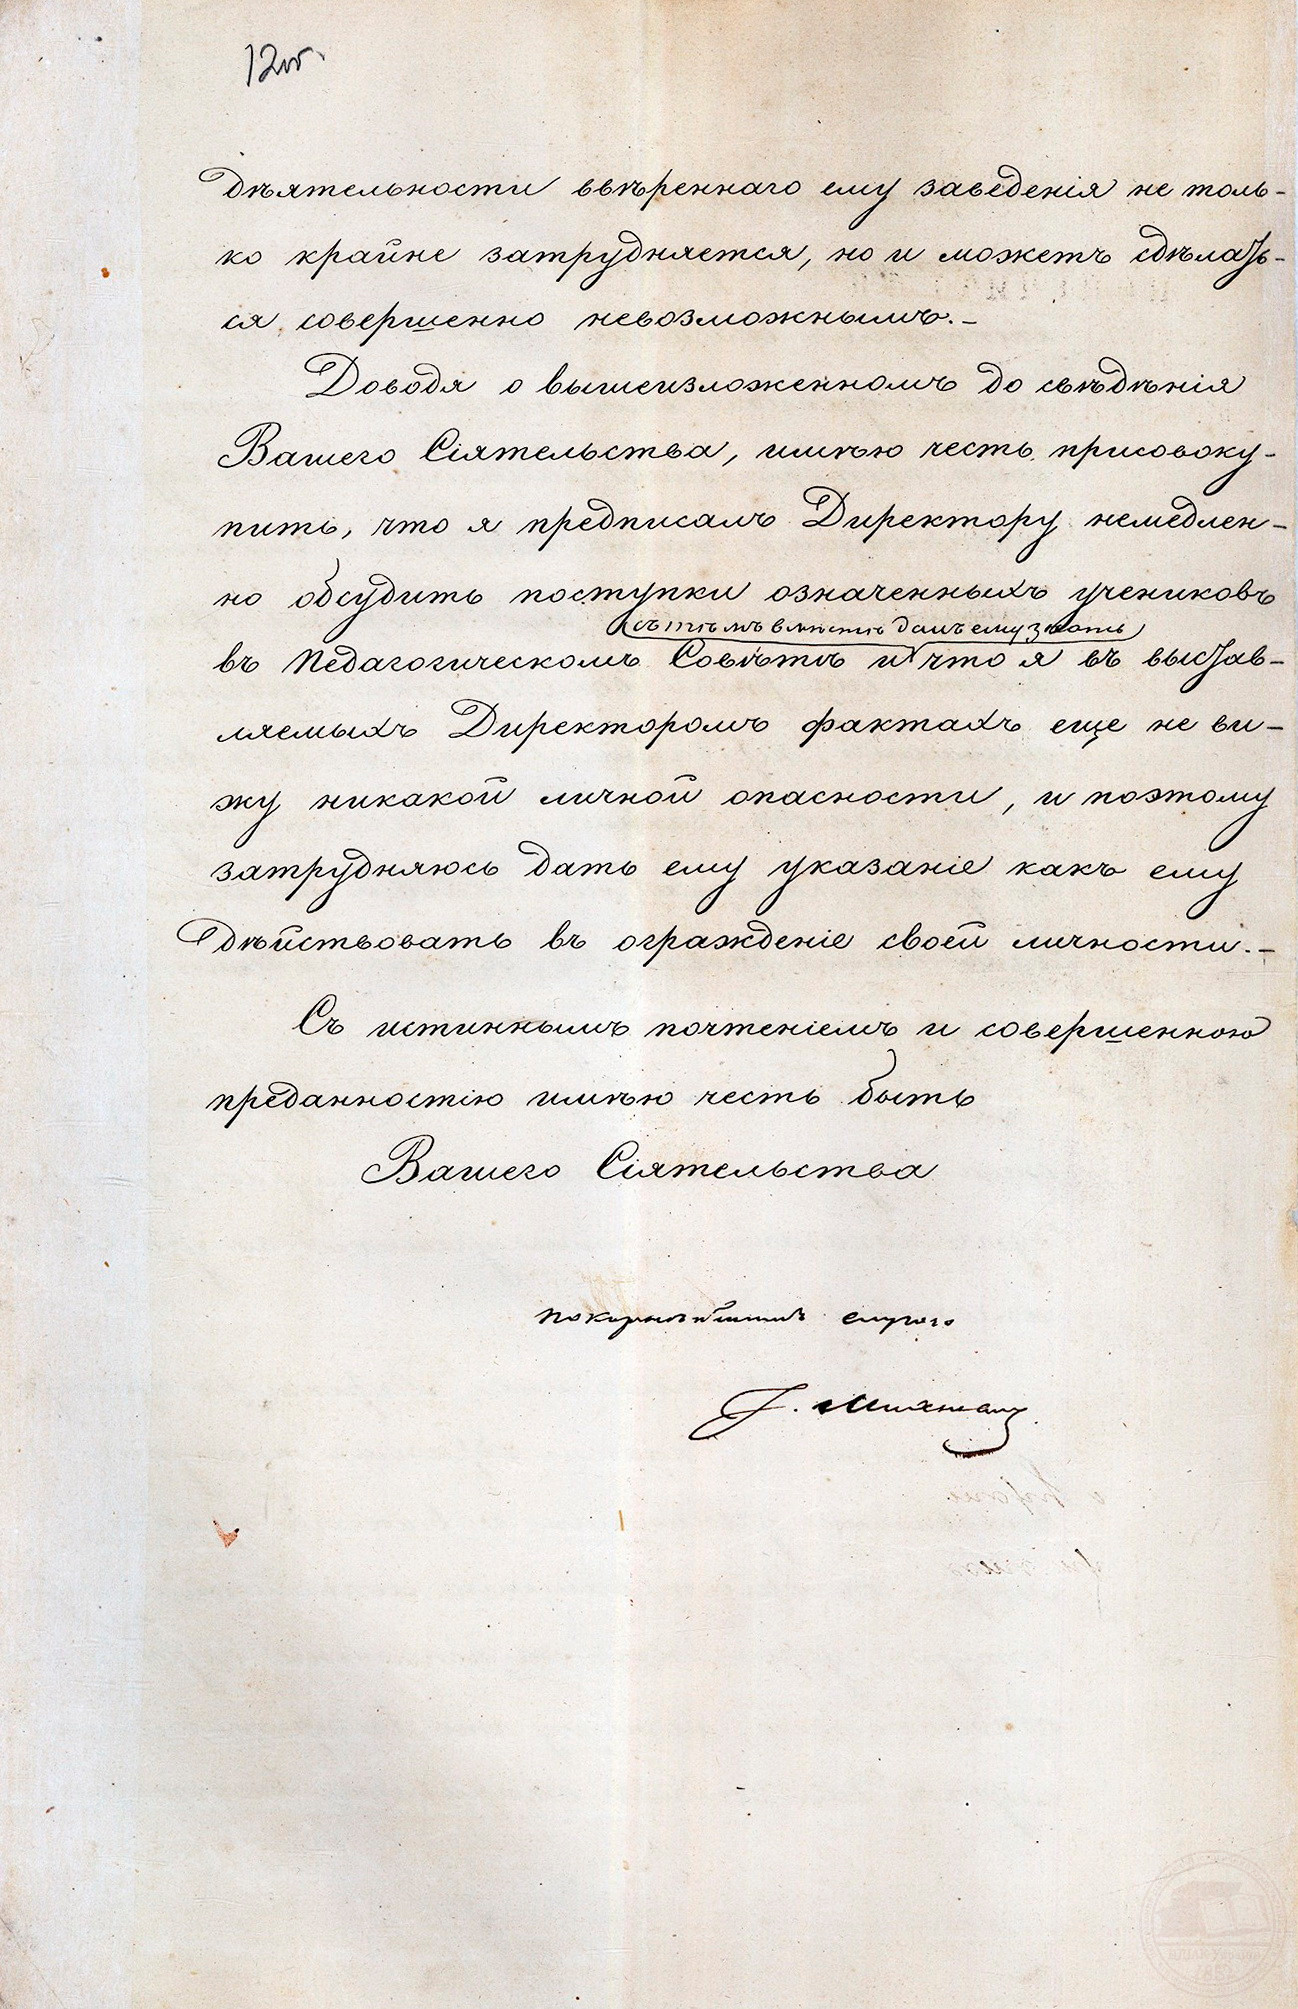 12об.
дѣятельности ввѣреннаго ему заведенія не толь-
ко крайне затрудняется, но и можетъ сдѣлать-
ся совершенно невозможнымъ.-
Доводя о вышеизложенномъ до свѣдѣнія
Вашего Сіятельства, имѣю честь присовоку-
пить, что я предписалъ Директору немедлен-
но обсудить поступки означенныхъ учениковъ
съ тѣмъ вмѣстѣ далъ ему знать
въ Педагогическомъ Совѣтѣ и что я въ выстав-
ляемыхъ Директоромъ фактахъ еще не ви-
жу никакой личной опасности, и поэтому
затрудняюсь дать ему указаніе какъ ему
дѣйствовать въ огражденіе своей личности.-
Съ истиннымъ почтеніемъ и совершенною
преданностію имѣю честь быть
Вашего Сіятельства
покорнѣйшимъ слугою